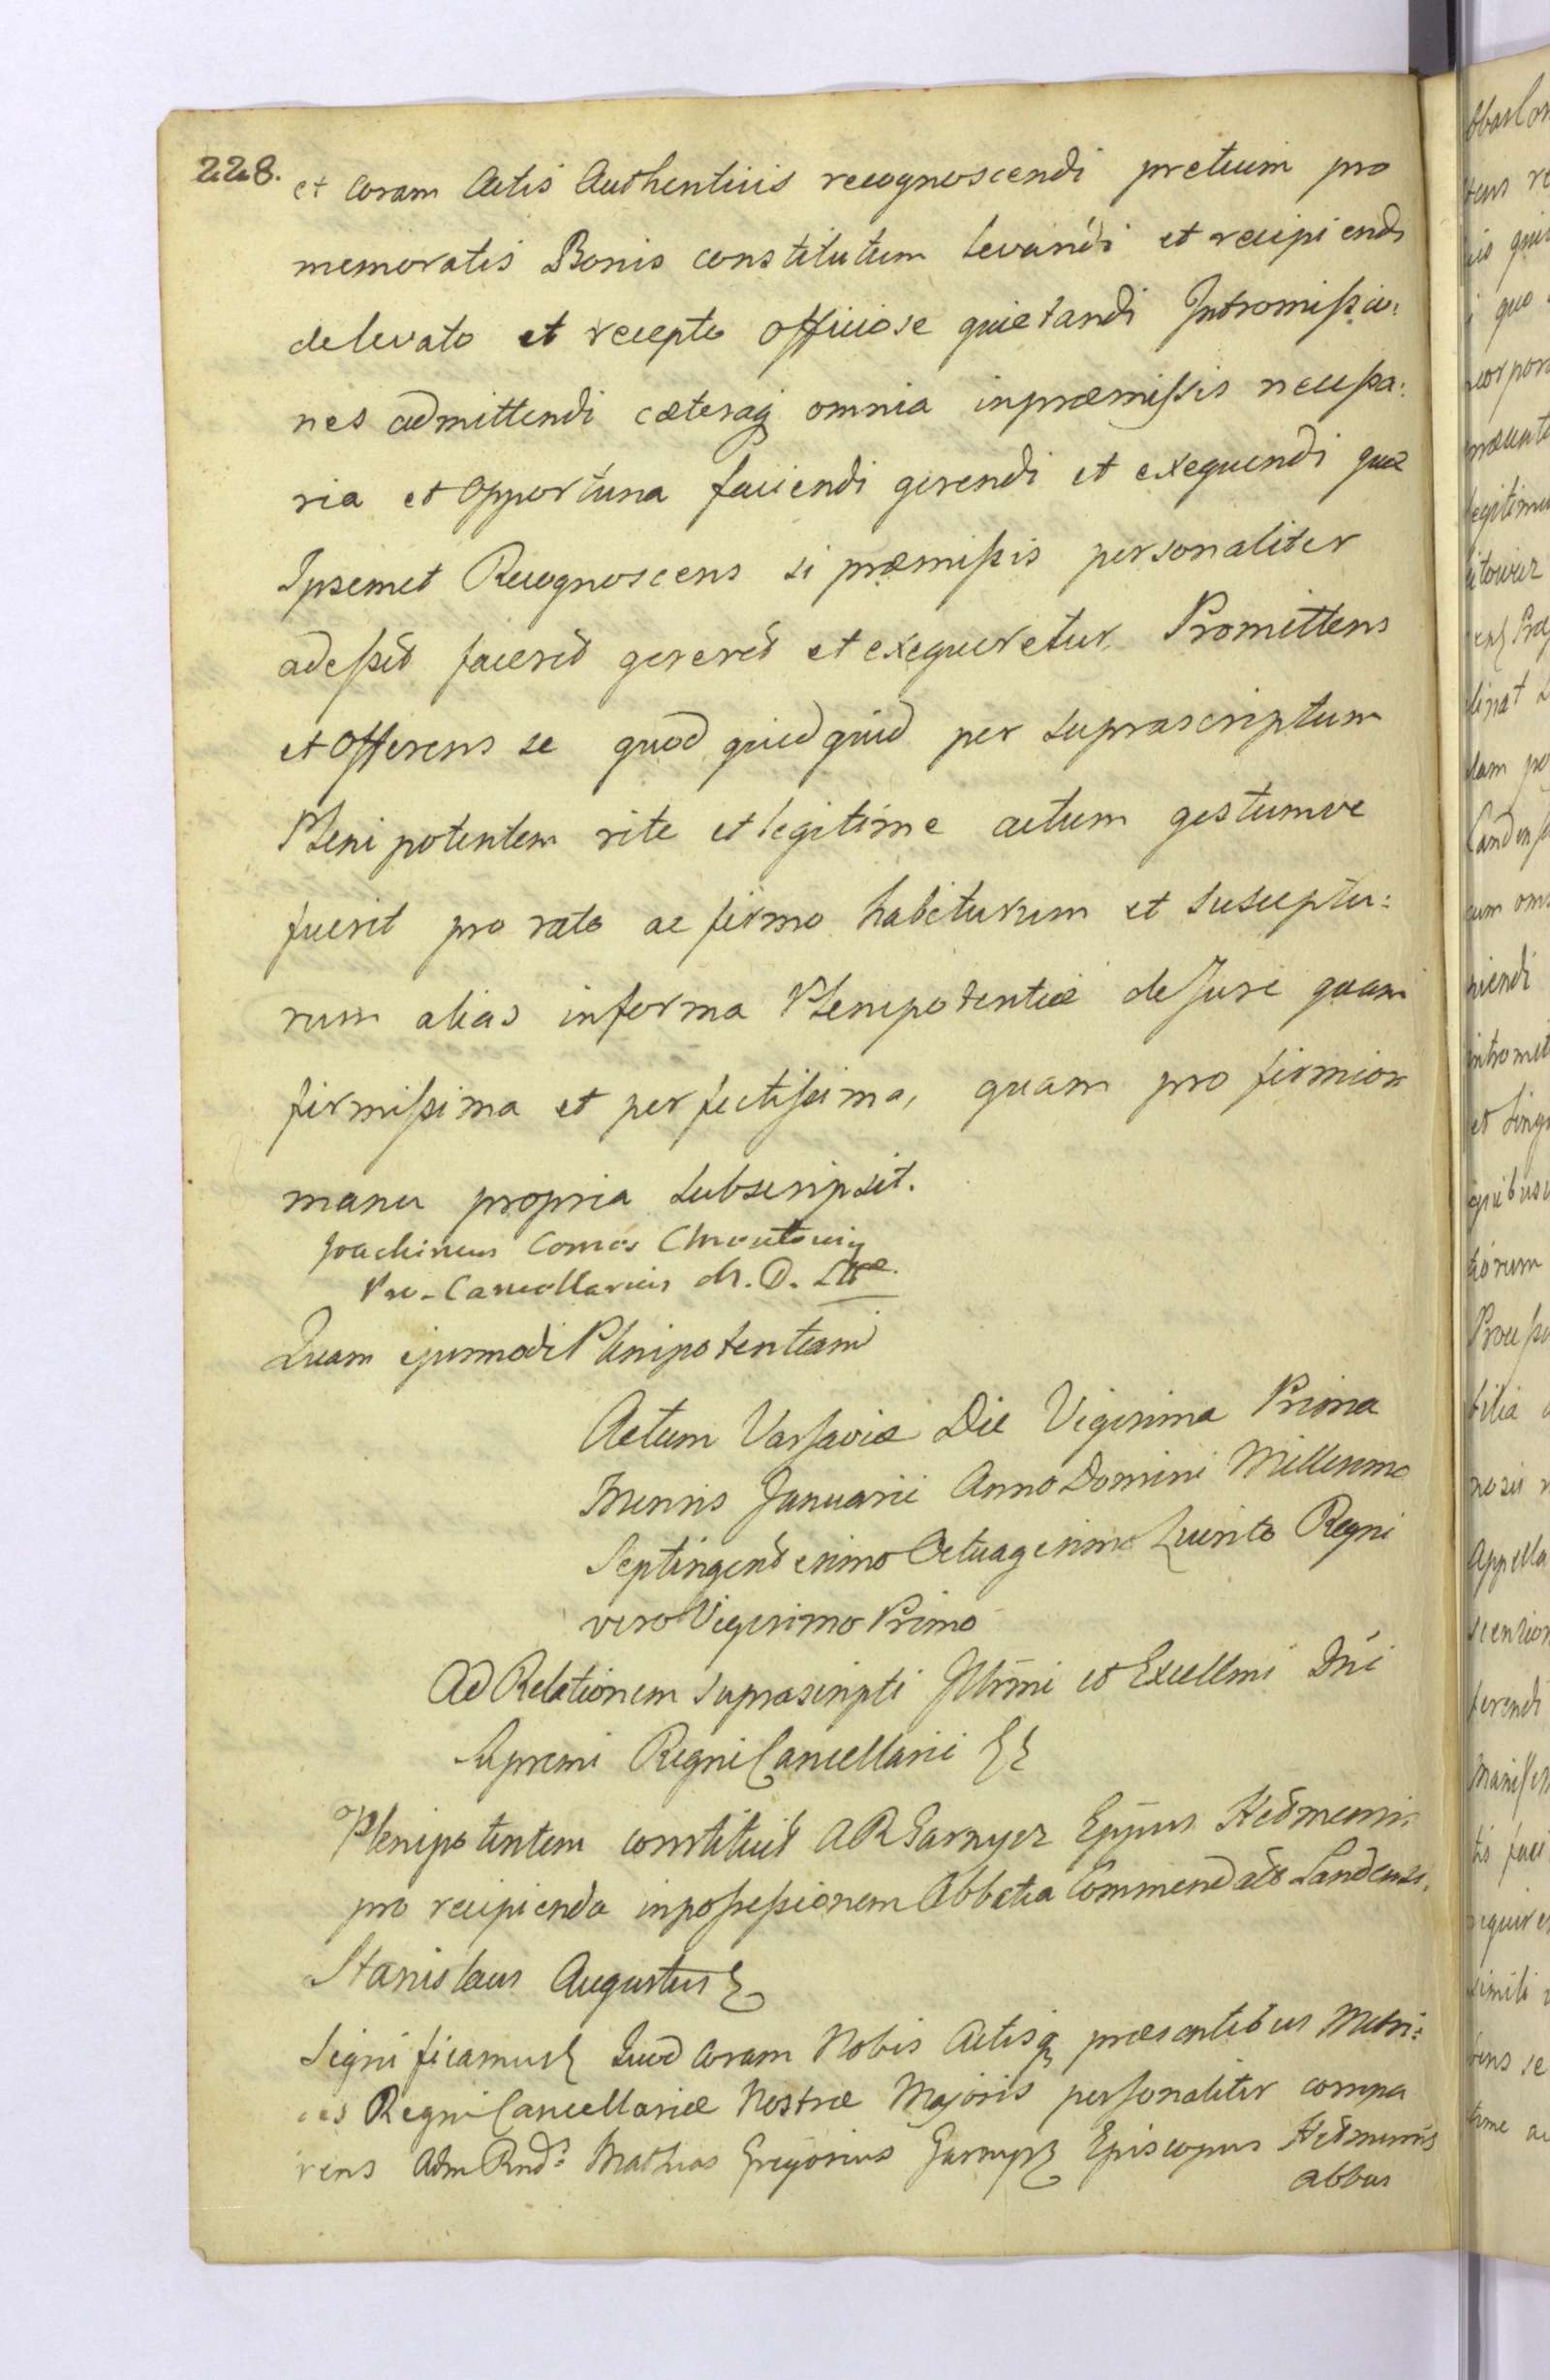 228.
et coram Actis Authenticis recognoscendi pretium pro
memoratis Bonis constitutum levandi et recipiendi
de levato et recepto officiose quietandi Intromissio:
nes admittendi cæteraq omnia in præmissis necessa:
ria et opportuna faciendi gerendi et exequendi quæ
Ipsemet Recognoscens si præmissis personaliter
adesset faceret gereret et exequeretur. Promittens
et Offerens se quod quidquid per suprascriptum
Plenipotentem rite et legitime actum gestumve
fuerit pro rato ac firmo habiturum et susceptu:
rum alias in forma Plenipotentiæ de Jure quam
firmissima et perfectissima, quam pro firmiori
manu propria subscripsit.
Joachimus Comes Chreptowicz
Pro-Cancellarius M. D. Litt
Quam ejusmodi Plenipotentiam
Actum Varsaviæ Die Vigesima Prima
Mensis Januarii Anno Domini Millesimo
Septingentesimo Octuagesimo Quinto Regni
vero Vigesimo Primo
Ad Relationem suprascripti Illrmi et Excellmi Dni
Supremi Regni Cancellarii
Plenipotentem constituit AR Garnysz Eppus Helmensis
pro recipienda in possessionem Abbatia Commendato Landensi.
Stanislaus Augustus
Significamus Quod Coram Nobis Actisq præsentibus Metri:
ces Regni Cancellariæ Nostræ Majoris personaliter compa
rens Adm Rnd: Mathias Gregorius Garnysz Episcopus Helmensis
abbas